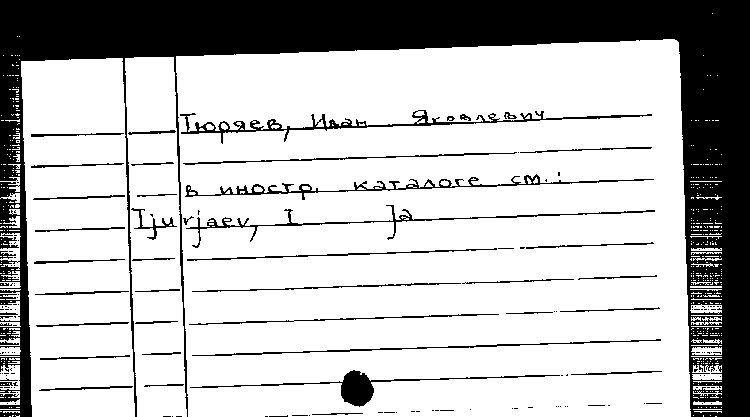 Тюряев, Иван Яковлевич
в иностр. каталоге см.:
Tjurjaev, I Ja